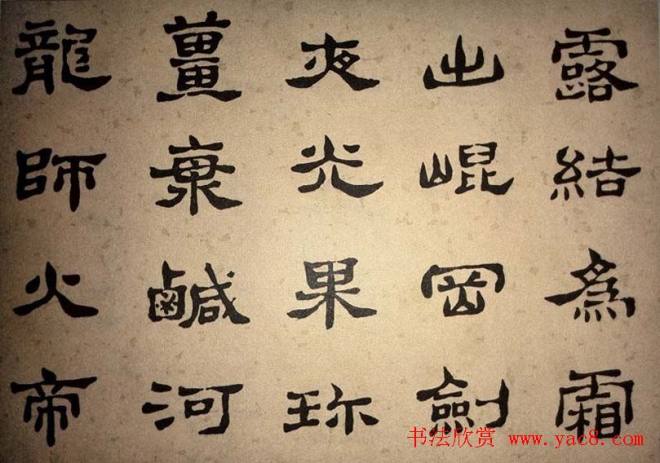 露結為霜
出崐岡劍
夜光果珎
薑海鹹河
龍師火帝
书法欣赏 www.yac8.com